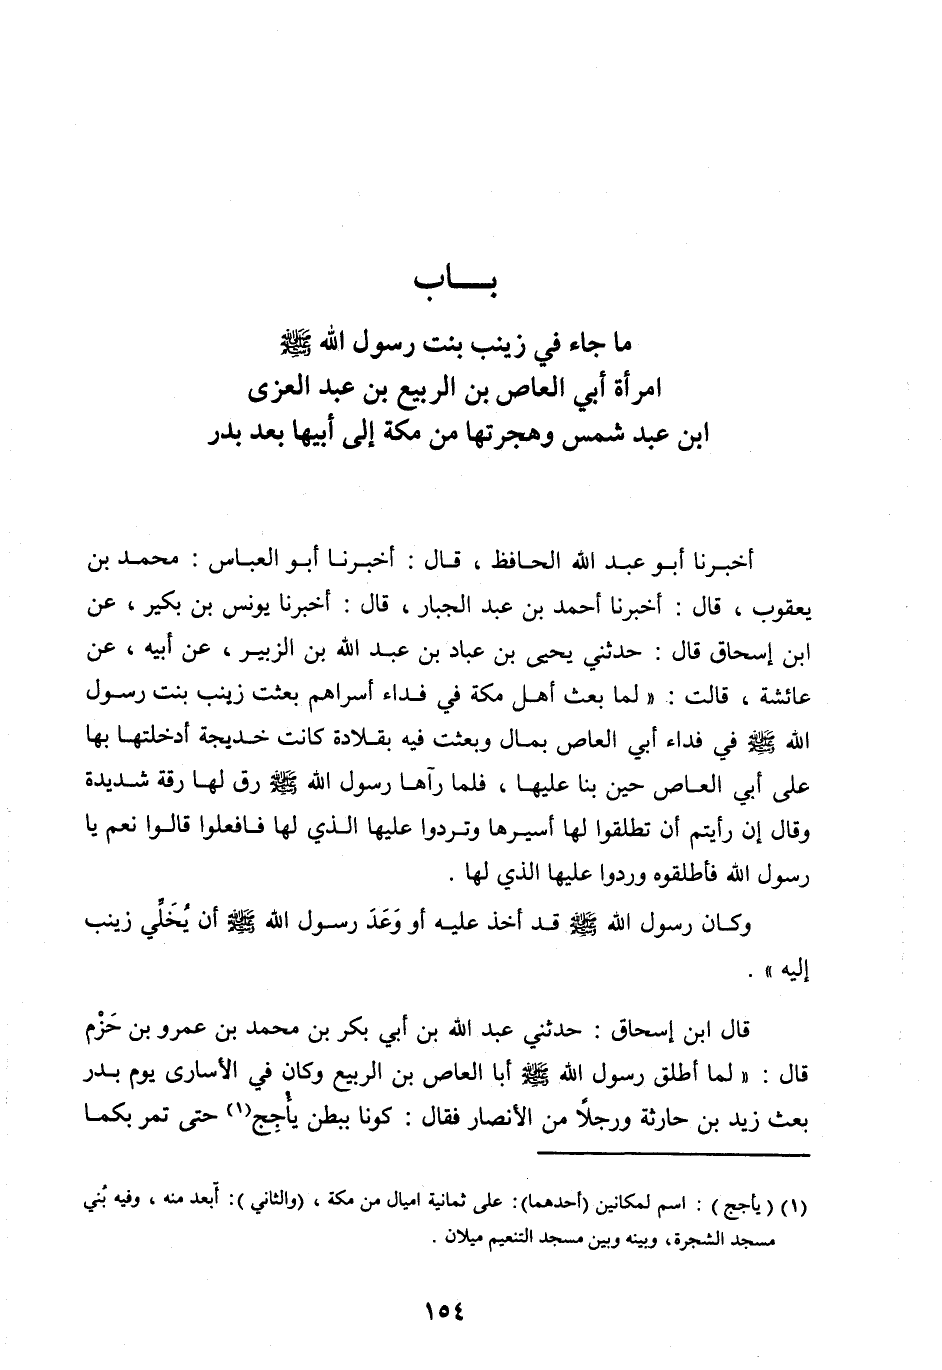 بـــاب
ما جاء في زينب بنت رسول الله ﷺ
امرأة أبي العاص بن الربيع بن عبد العزى
ابن عبد شمس وهجرتها من مكة إلى أبيها بعد بدر
أخبرنا أبو عبد الله الحافظ ، قال : أخبرنا أبو العباس : محمد بن
يعقوب ، قال : أخبرنا أحمد بن عبد الجبار ، قال : أخبرنا يونس بن بكير ، عن
ابن إسحاق قال : حدثني يحيى بن عباد بن عبد الله بن الزبير ، عن أبيه ، عن
عائشة ، قالت : « لما بعث أهل مكة في فداء أسراهم بعثت زينب بنت رسول
الله ﷺ في فداء أبي العاص بمال وبعثت فيه بقلادة كانت خديجة أدخلتها بها
على أبي العاص حين بنا عليها ، فلما رآها رسول الله ﷺ رق لها رقة شديدة
وقال إن رأيتم أن تطلقوا لها أسيرها وتردوا عليها الذي لها فافعلوا قالوا نعم يا
رسول الله فأطلقوه وردوا عليها الذي لها .
وكان رسول الله ﷺ قد أخذ عليه أو وَعَدَ رسول الله ﷺ أن يُخَلِّي زينب
إليه » .
قال ابن إسحاق : حدثني عبد الله بن أبي بكر بن محمد بن عمرو بن حَزْم
قال : « لما أطلق رسول الله ﷺ أبا العاص بن الربيع وكان في الأسارى يوم بدر
بعث زيد بن حارثة ورجلاً من الأنصار فقال : كونا ببطن يأجِج(١) حتى تمر بكما
(١) ( يأجج ) : اسم لمكانين (أحدهما): على ثمانية اميال من مكة ، (والثاني ): أبعد منه ، وفيه بُني
مسجد الشجرة، وبينه وبين مسجد التنعيم ميلان .
١٥٤